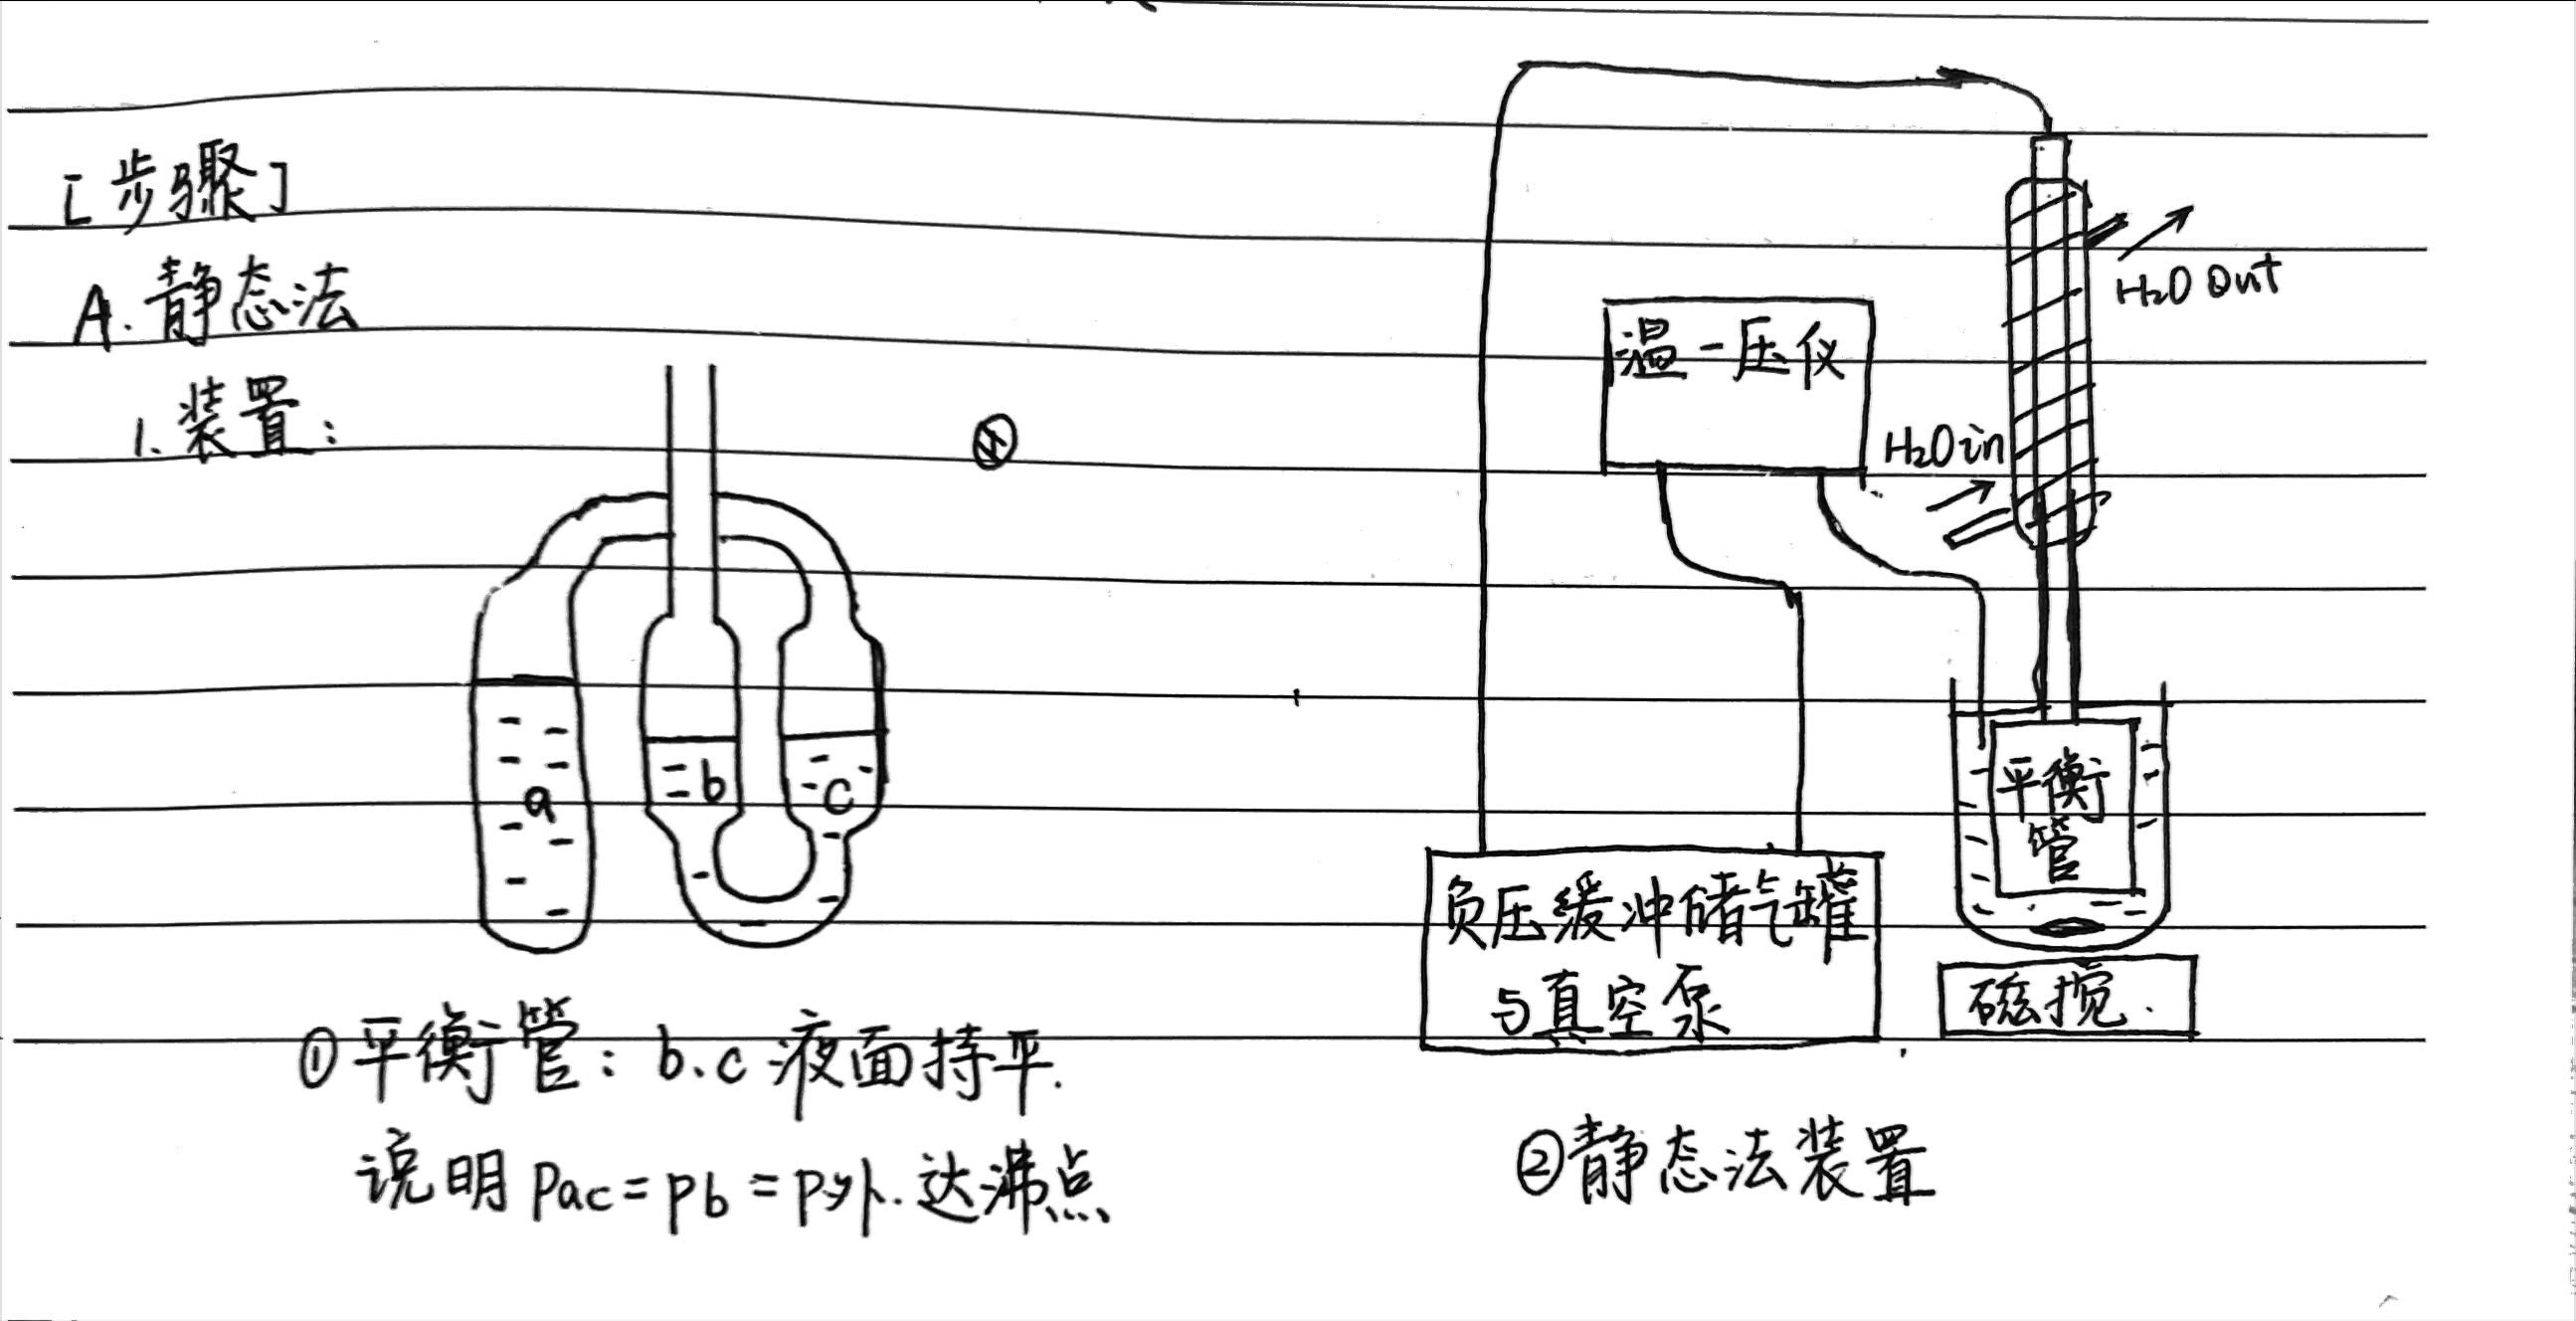 [步骤]
A. 静态法
1. 装置:
a
b
c
①平衡管: b.c 液面持平.
说明 Pac = Pb = P外. 达沸点
温-压仪
H₂O out
H₂O in
平衡
管
负压缓冲储气罐
与真空泵
磁搅.
②静态法装置